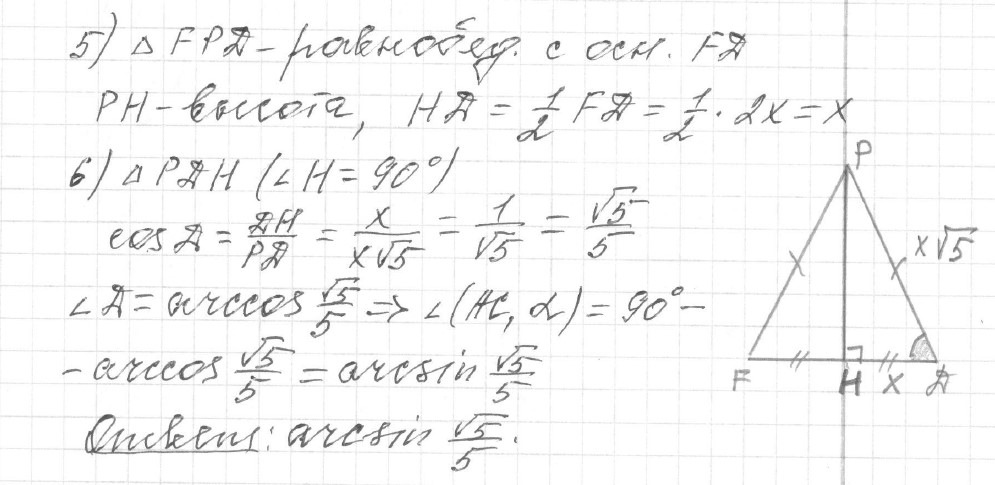 5) △ FPД – равнобед. с осн. FД
PH – высота, HД = 1/2 FД = 1/2 · 2x = x
6) △ PДH (∠H = 90°)
cos Д = ДH/PД = x/x√5 = 1/√5 = √5/5
∠Д = arccos √5/5 => ∠(AC, α) = 90° –
– arccos √5/5 = arcsin √5/5
Ответ: arcsin √5/5.
P
x√5
F H x Д